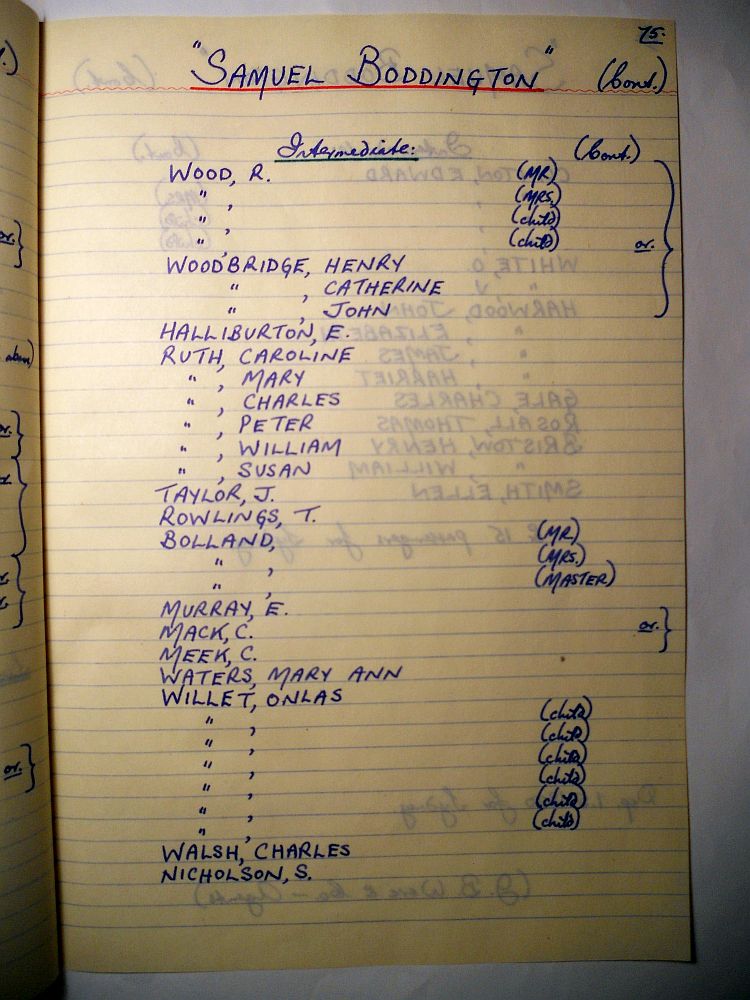 75.
"SAMUEL BODDINGTON" (Cont.)
Intermediate: (Cont.)
WOOD, R. (MR)
" , (MRS.)
" , (child)
" , (child) or.
WOODBRIDGE, HENRY
" , CATHERINE
" , JOHN
HALLIBURTON, E.
RUTH, CAROLINE
" , MARY
" , CHARLES
" , PETER
" , WILLIAM
" , SUSAN
TAYLOR, J.
ROWLINGS, T.
BOLLAND, (MR)
" , (MRS.)
" , (MASTER)
MURRAY, E.
MACK, C. or.
MEEK, C.
WATERS, MARY ANN
WILLET, ONLAS
" , (child)
" , (child)
" , (child)
" , (child)
" , (child)
" , (child)
WALSH, CHARLES
NICHOLSON, S.